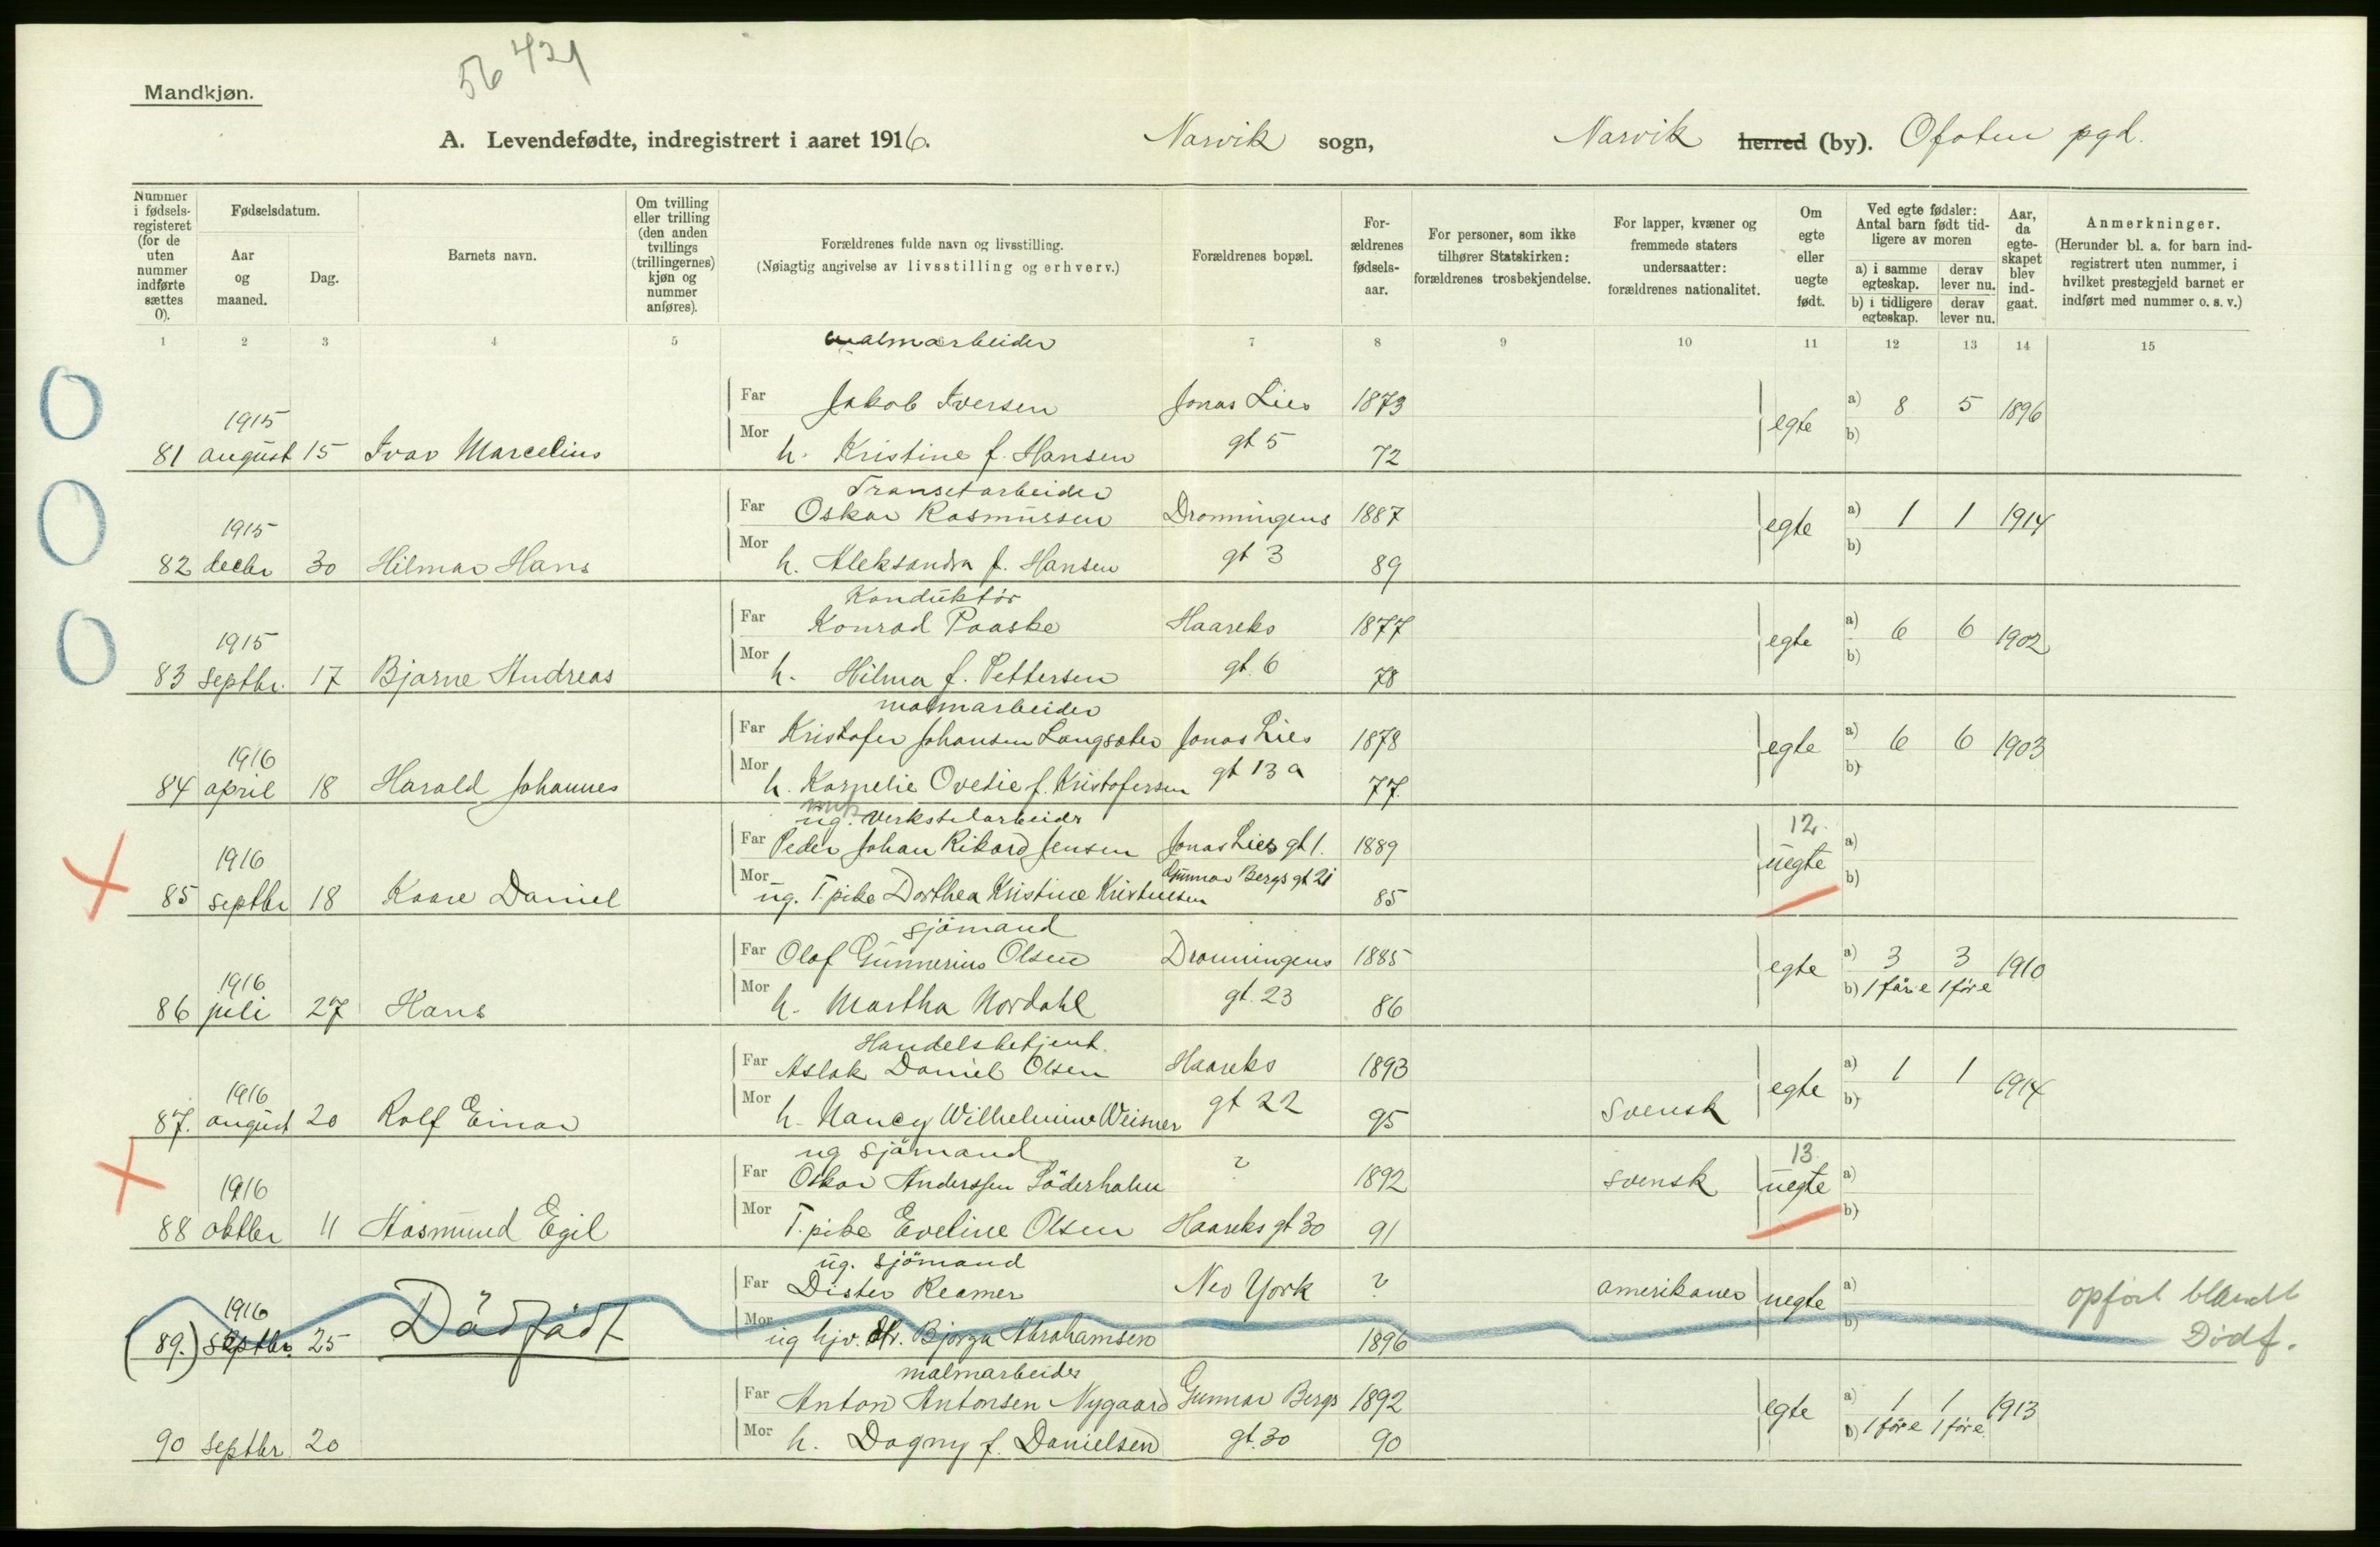 56 421
Mandkjøn.
A. Levendefødte, indregistrert i aaret 1916. Narvik sogn, Narvik herred (by). Ofoten pgd.
Nummer i fødsels-registeret (for de uten nummer indførte sættes 0).
Fødselsdatum.
Aar og maaned.
Dag.
Barnets navn.
Om tvilling eller trilling (den anden tvillings (trillingernes) kjøn og nummer anføres).
Forældrenes fulde navn og livsstilling.
(Nøiagtig angivelse av livsstilling og erhverv.)
Forældrenes bopæl.
For-ældrenes fødsels-aar.
For personer, som ikke tilhører Statskirken: forældrenes trosbekjendelse.
For lapper, kvæner og fremmede staters undersaatter: forældrenes nationalitet.
Om egte eller uegte født.
Ved egte fødsler: Antal barn født tid-ligere av moren
a) i samme egteskap. derav lever nu.
b) i tidligere egteskap. derav lever nu.
Aar, da egte-skapet blev ind-gaat.
Anmerkninger.
(Herunder bl. a. for barn ind-registrert uten nummer, i hvilket prestegjeld barnet er indført med nummer o. s. v.)
1 2 3 4 5 7 8 9 10 11 12 13 14 15
malmarbeider
Far Jakob Iversen Jonas Lies 1873 a) 8 5 1896
1915
Mor egte b)
81 august 15 Ivar Marcelius h. Kristine f. Hansen gt 5 72
Transetarbeider
Far Oskar Rasmussen Dronningens 1887 egte a) 1 1 1914
1915
Mor b)
82 decbr 30 Hilmar Hans h. Aleksandra f. Hansen gt 3 89
Konduktör
Far Konrad Paaske Haareks 1877 egte a) 6 6 1902
1915
Mor b)
83 septbr. 17 Bjarne Andreas h. Hilma f. Pettersen gt. 6 78
malmarbeider
Far Kristofer Johansen Langsæter Jonas Lies 1878 egte a) 6 6 1903
1916
Mor b)
84 april 18 Harald Johannes h. Kornelie Ovedie f. Kristofersen gt 13 a 77.
ug. verkstedarbeidr
12.
Far Peder Johan Rikard Jensen Jonas Lies gt 1. 1889 uegte a)
1916
Mor Gunnar Bergs gt 21 b)
85 septbr 18 Kaare Daniel ug. T. pike Dorthea Kristine Kristensen 85
sjömand
Far Olaf Gunnerius Olsen Dronningens 1885 egte a) 3 3 1910
1916
Mor b) 1 före 1 före
86 juli 27 Hans h. Martha Nordahl gt. 23 86
Handelsbetjent.
Far Aslak Daniel Olsen Haareks 1893 egte a) 1 1 1914
1916
Mor b)
87. august 20 Rolf Einar h. Nancy Wilhelmine Weisner gt 22 95 svensk
ug sjömand
13
Far Oskar Anderssen Söderholm ? 1892 svensk uegte a)
1916
Mor b)
88 oktbr 11 Aasmund Egil T. pike Eveline Olsen Haareks gt 30 91
ug. sjömand
Far Dister Reamer Neo York ? amerikaner uegte a) opført blandt
1916
Mor b) Dödf.
(89.) septbr. 25 Dödfödt ug hjv. Bjorga Abrahamsen 1896
malmarbeider
Far Anton Antonsen Nygaard Gunnar Bergs 1892 egte a) 1 1 1913
Mor b) 1 före 1 före
90 septbr. 20 h. Dagny f. Danielsen gt. 30 90